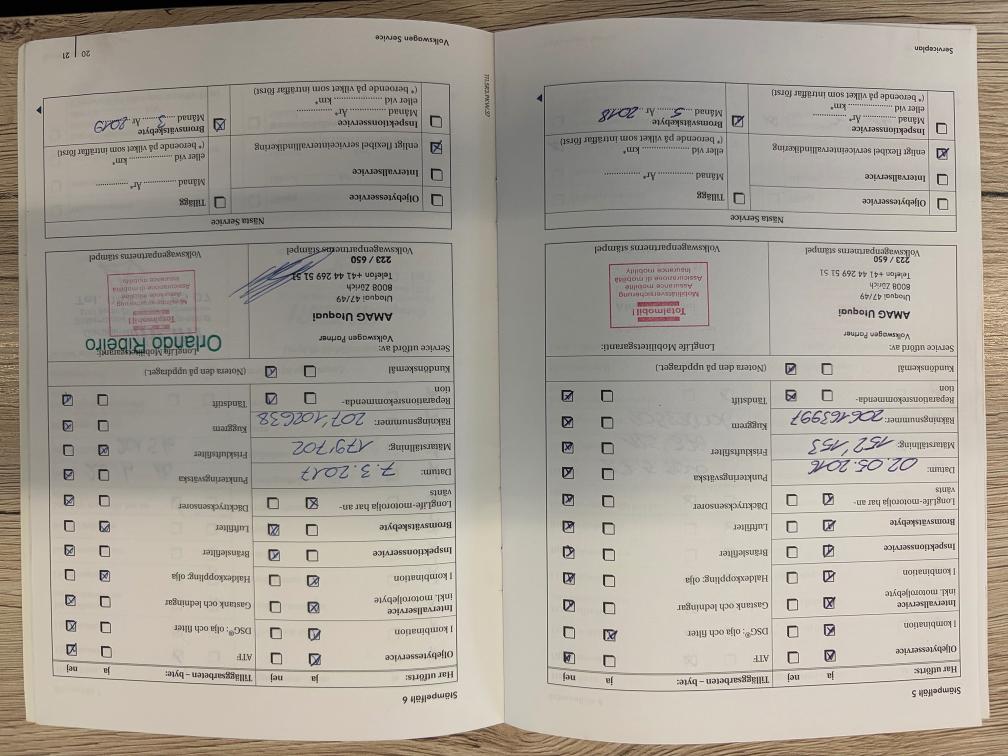 Stämpelfält 5
Har utförts: ja nej
Oljebytesservice
I kombination
Intervallservice
inkl. motoroljebyte
I kombination
Inspektionsservice
Bromsvätskebyte
LongLife-motorolja har an-
vänts
Datum: 02.05.2016
Mätarställning: 152'153
Räkningsnummer: 206163997
Reparationsrekommenda-
tion
Kundönskemål
Tilläggsarbeten – byte: ja nej
ATF
DSG®; olja och filter
Gastank och ledningar
Haldexkoppling: olja
Bränslefilter
Luftfilter
Däcktryckssensorer
Punkteringsvätska
Friskluftsfilter
Kuggrem
Tändstift
(Notera den på uppdraget.)
Service utförd av:
Volkswagen Partner
AMAG Utoquai
Utoquai 47/49
8008 Zürich
Telefon +41 44 269 51 51
223 / 650
Volkswagenpartnerns stämpel
LongLife Mobilitetsgaranti:
Totalmobil!
Mobilitätsversicherung
Assurance mobilité
Assicurazione di mobilità
Insurance mobility
Volkswagenpartnerns stämpel
Nästa Service
Oljebytesservice
Intervallservice
enligt flexibel serviceintervallindikering
Inspektionsservice
Månad ............ År* ............
eller vid ............ km*
(* beroende på vilket som inträffar först)
Tillägg
Månad ............ År* ............
eller vid ............ km*
(* beroende på vilket som inträffar först)
Bromsvätskebyte
Månad 5 År 2018
Serviceplan
Stämpelfält 6
Har utförts: ja nej
Oljebytesservice
I kombination
Intervallservice
inkl. motoroljebyte
I kombination
Inspektionsservice
Bromsvätskebyte
LongLife-motorolja har an-
vänts
Datum: 7.3.2017
Mätarställning: 179'702
Räkningsnummer: 207'102638
Reparationsrekommenda-
tion
Kundönskemål
Tilläggsarbeten – byte: ja nej
ATF
DSG®; olja och filter
Gastank och ledningar
Haldexkoppling: olja
Bränslefilter
Luftfilter
Däcktryckssensorer
Punkteringsvätska
Friskluftsfilter
Kuggrem
Tändstift
(Notera den på uppdraget.)
Service utförd av:
Volkswagen Partner
AMAG Utoquai
Utoquai 47/49
8008 Zürich
Telefon +41 44 269 51 51
223 / 650
Volkswagenpartnerns stämpel
LongLife Mobilitetsgaranti:
Orlando Ribeiro
Totalmobil!
Mobilitätsversicherung
Assurance mobilité
Assicurazione di mobilità
Insurance mobility
Volkswagenpartnerns stämpel
Nästa Service
Oljebytesservice
Intervallservice
enligt flexibel serviceintervallindikering
Inspektionsservice
Månad ............ År* ............
eller vid ............ km*
(* beroende på vilket som inträffar först)
Tillägg
Månad ............ År* ............
eller vid ............ km*
(* beroende på vilket som inträffar först)
Bromsvätskebyte
Månad 3 År 2019
Volkswagen Service 20 | 21